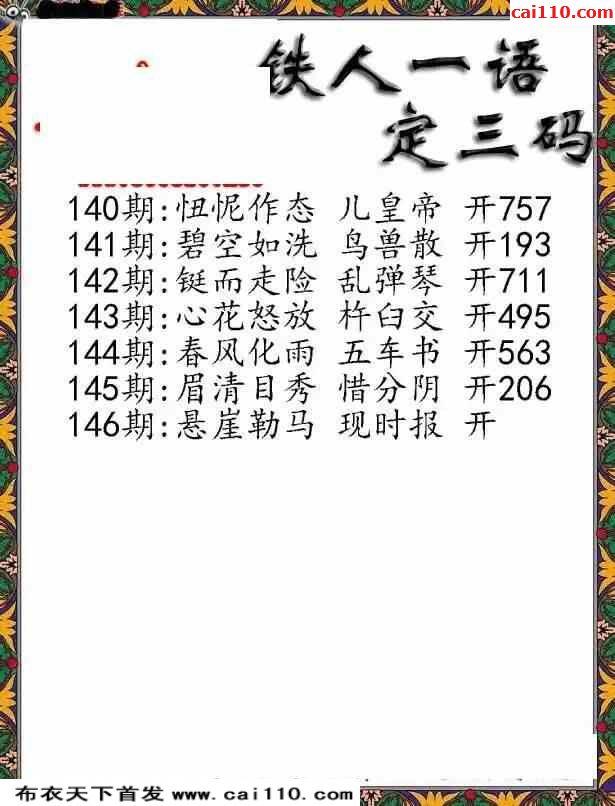 cai110.com
铁人一语
定三码
140期:忸怩作态 儿皇帝 开757
141期:碧空如洗 鸟兽散 开193
142期:铤而走险 乱弹琴 开711
143期:心花怒放 杵臼交 开495
144期:春风化雨 五车书 开563
145期:眉清目秀 惜分阴 开206
146期:悬崖勒马 现时报 开
布衣天下首发 www.cai110.com